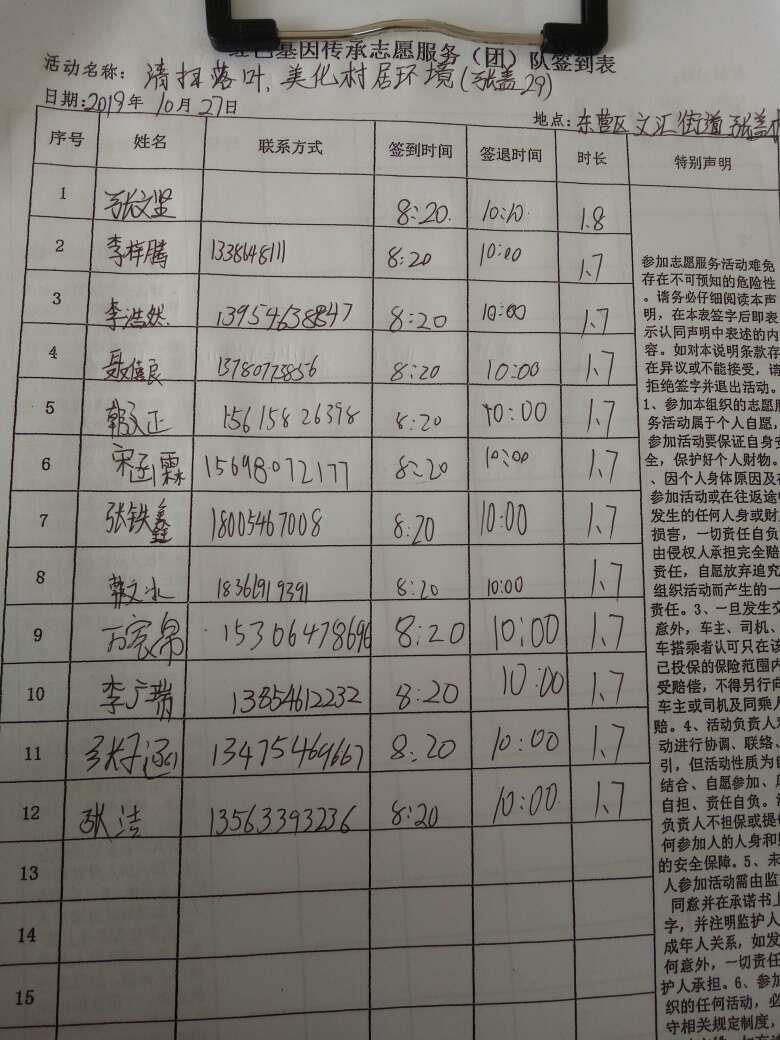 红色基因传承志愿服务（团）队签到表
活动名称：清扫落叶，美化村居环境(张盖29)
日期：2019年10月27日
地点：东营区文汇街道张盖村
序号 姓名 联系方式 签到时间 签退时间 时长 特别声明
1 张文坚 8:20 10:10 1.8
2 李梓腾 8:20 10:00 1.7
3 李浩然 13954638847 8:20 10:00 1.7
4 聂信良 13780773856 8:20 10:00 1.7
5 韩文正 15615826398 8:20 10:00 1.7
6 宋函霖 15698072177 8:20 10:00 1.7
7 张铁鑫 18005467008 8:20 10:00 1.7
8 韩文水 18361919391 8:20 10:00 1.7
9 15306478696 8:20 10:00 1.7
10 李广瑞 13854612232 8:20 10:00 1.7
11 张子涵 13475469667 8:20 10:00 1.7
12 张洁 13563393236 8:20 10:00 1.7
13
14
15
参加志愿服务活动难免
存在不可预知的危险性
。请务必仔细阅读本声
明，在本表签字后即表
示认同声明中表述的内
容。如对本说明条款存
在异议或不能接受，请
拒绝签字并退出活动。
1、参加本组织的志愿服
务活动属于个人自愿，
参加活动要保证自身安
全，保护好个人财物。
、因个人身体原因及在
参加活动或在往返途中
发生的任何人身或财产
损害，一切责任自负
由侵权人承担完全赔
责任，自愿放弃追究
组织活动而产生的一
责任。3、一旦发生交
意外，车主、司机、
车搭乘者认可只在该
已投保的保险范围内
受赔偿，不得另行向
车主或司机及同乘人
赔。4、活动负责人对
动进行协调、联络、
引，但活动性质为自
结合、自愿参加、
自担、责任自负。
负责人不担保或提供
何参加人的人身和财
的安全保障。5、未
人参加活动需由监
同意并在承诺书上
字，并注明监护人
成年人关系，如发
何意外，一切责任
护人承担。6、参加
织的任何活动，必
守相关规定制度，